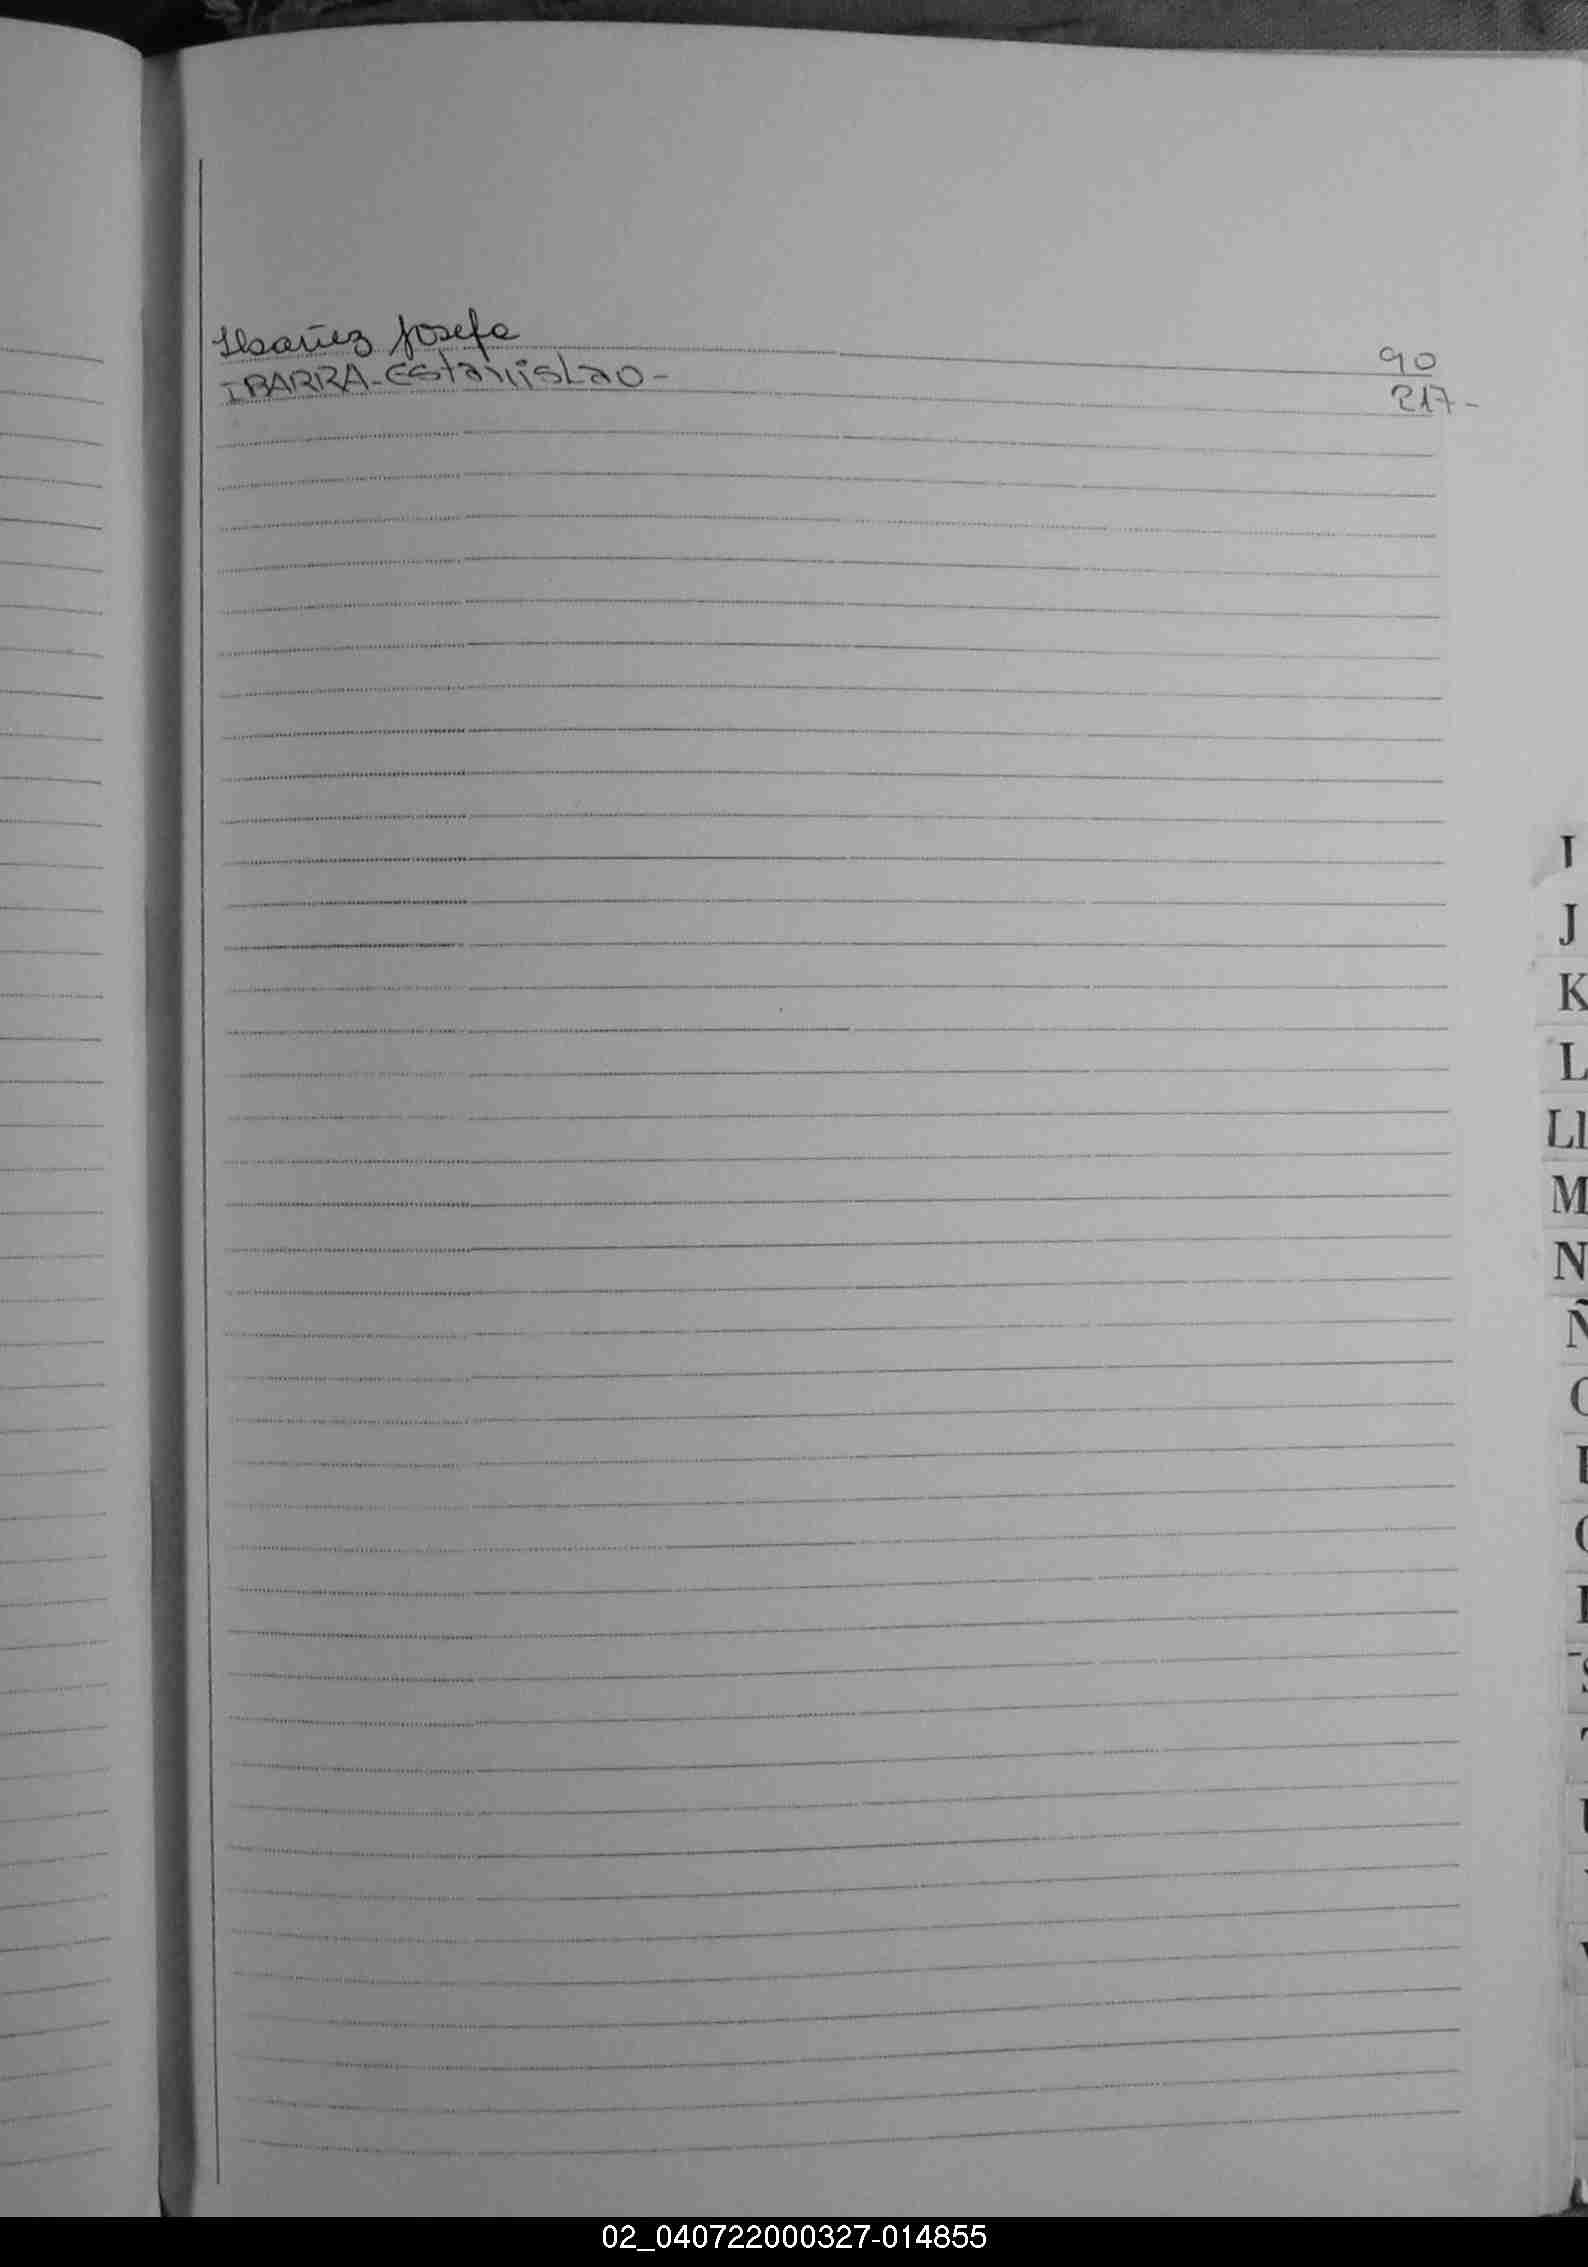 Ibañez Josefa 90
IBARRA-EstanisLao- 217-
I
J
K
L
Ll
M
N
Ñ
02_040722000327-014855